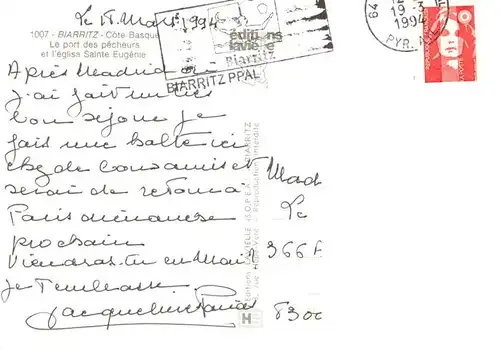 Le 18 Mars 1994
1007 - BIARRITZ - Côte Basque
Le port des pêcheurs
et l'église Sainte Eugénie
éditions
lavielle
Biarritz
BIARRITZ PPAL
64
19-3
1994
PYR.
Après Madrid où
j'ai fait un très
bon séjour je
fais une halte ici
chez de bons amis et
serai de retour à
Paris dimanche
prochain
Viendras-tu en Mai ?
Je t'embrasse
Jacqueline
BIARRITZ
Reproduction interdite
Mad
Le
366
8300